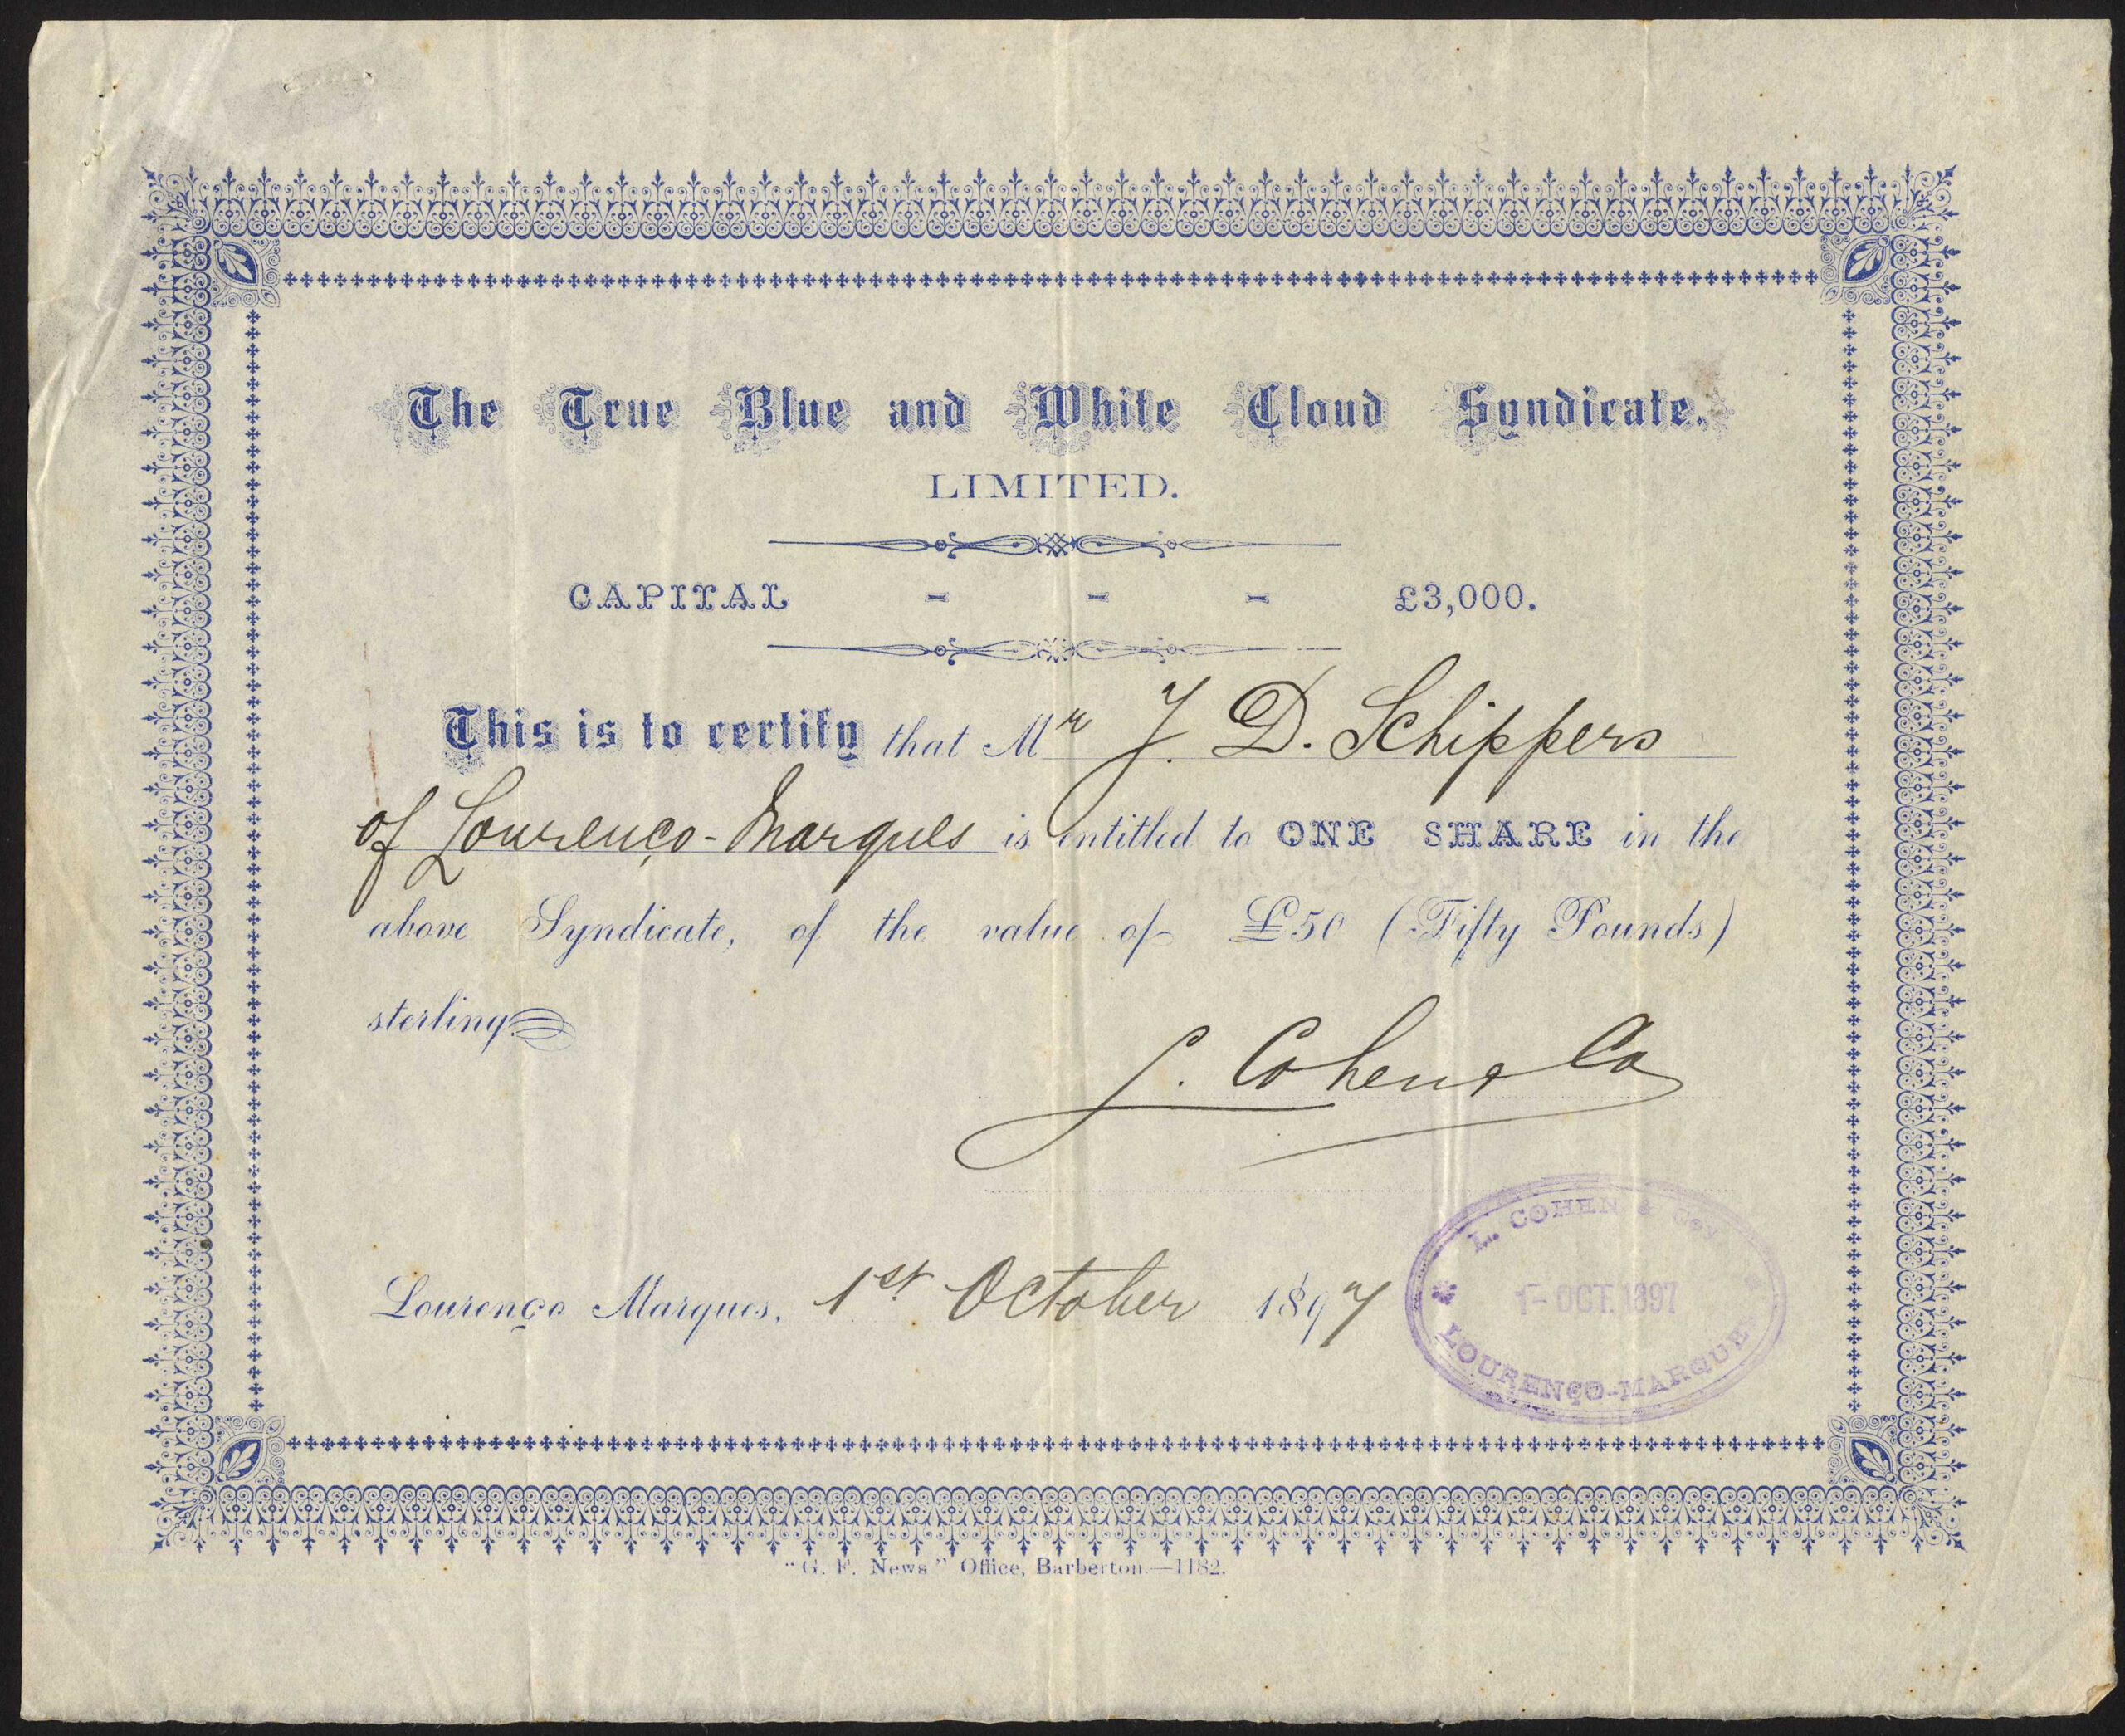 The True Blue and White Cloud Syndicate.
LIMITED.
CAPITAL - - - £3,000.
This is to certify that Mr J. D. Schippers
of Lourenço-Marques is entitled to ONE SHARE in the
above Syndicate, of the value of £50 (Fifty Pounds)
sterling.
L. Cohen & Co
L. COHEN & Coy
Lourenço Marques, 1st October 1897
1- OCT. 1897
LOURENÇO-MARQUES
"G. F. News" Office, Barberton.—1182.